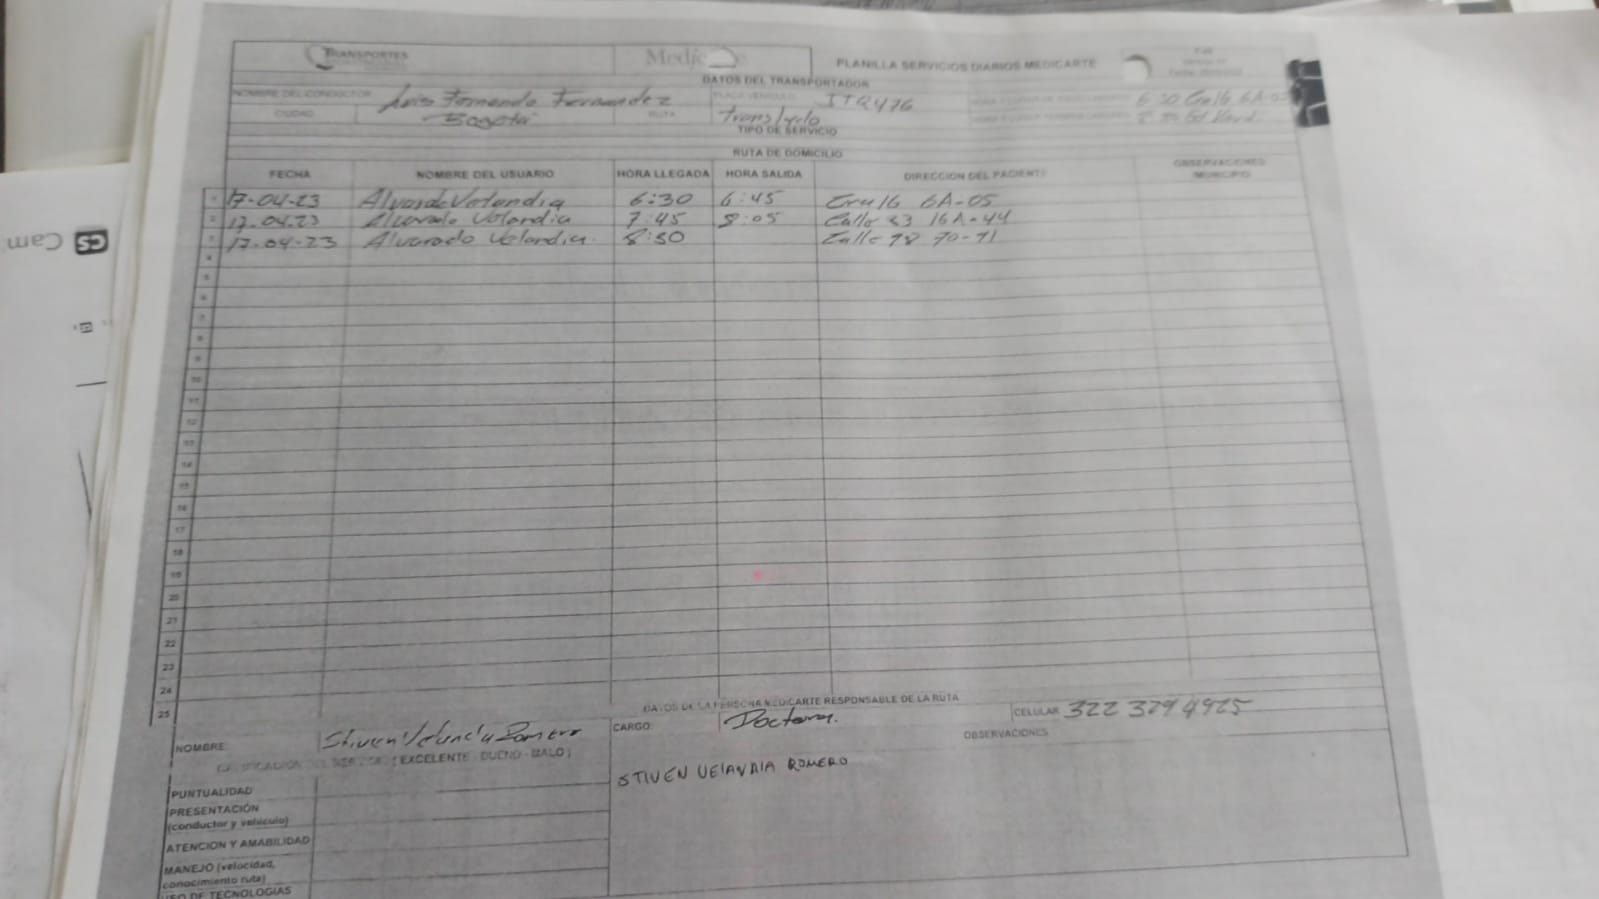 TRANSPORTES
PLANILLA SERVICIOS DIARIOS MEDICARTE
DATOS DEL TRANSPORTADOR
NOMBRE DEL CONDUCTOR Luis Fernando Fernandez PLACA VEHICULO ITQ476
CIUDAD Bogotá RUTA
TIPO DE SERVICIO
RUTA DE DOMICILIO
FECHA NOMBRE DEL USUARIO HORA LLEGADA HORA SALIDA DIRECCION DEL PACIENTE OBSERVACIONES MUNICIPIO
1 17-04-23 Alvarado Velandia 6:30 6:45 Cra 16 6A-05
2 17.04.23 Alvarado Velandia 7:45 8:05 Calle 33 16A-44
3 17-04-23 Alvarado Velandia. 8:30 Calle 98 70-91
4
5
6
7
8
9
10
11
12
13
14
15
16
17
18
19
20
21
22
23
24
25
DATOS DE LA PERSONA MEDICARTE RESPONSABLE DE LA RUTA
NOMBRE Stiven Velandia Romero CARGO: CELULAR 322 3294925
(EXCELENTE - BUENO - MALO) OBSERVACIONES
STIVEN VELANDIA ROMERO
PUNTUALIDAD
PRESENTACIÓN
(conductor y vehiculo)
ATENCION Y AMABILIDAD
MANEJO (velocidad,
conocimiento ruta)
USO DE TECNOLOGIAS
CS Cam